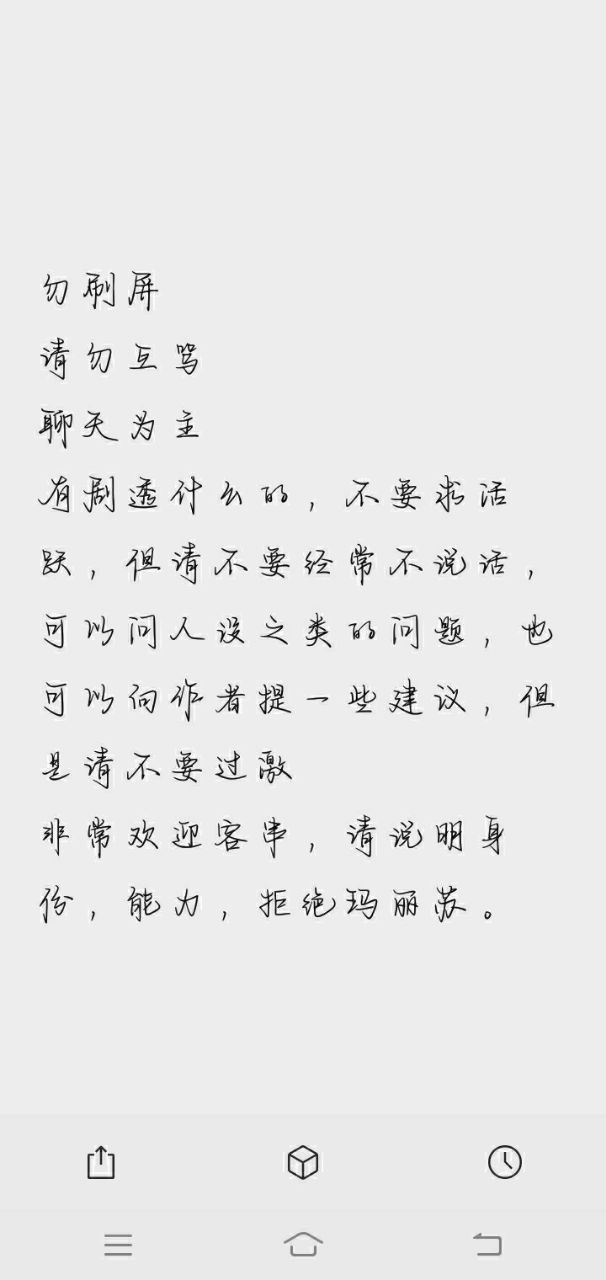 勿刷屏
请勿互骂
聊天为主
有剧透什么的，不要求活
跃，但请不要经常不说话，
可以问人设之类的问题，也
可以向作者提一些建议，但
是请不要过激
非常欢迎客串，请说明身
份，能力，拒绝玛丽苏。